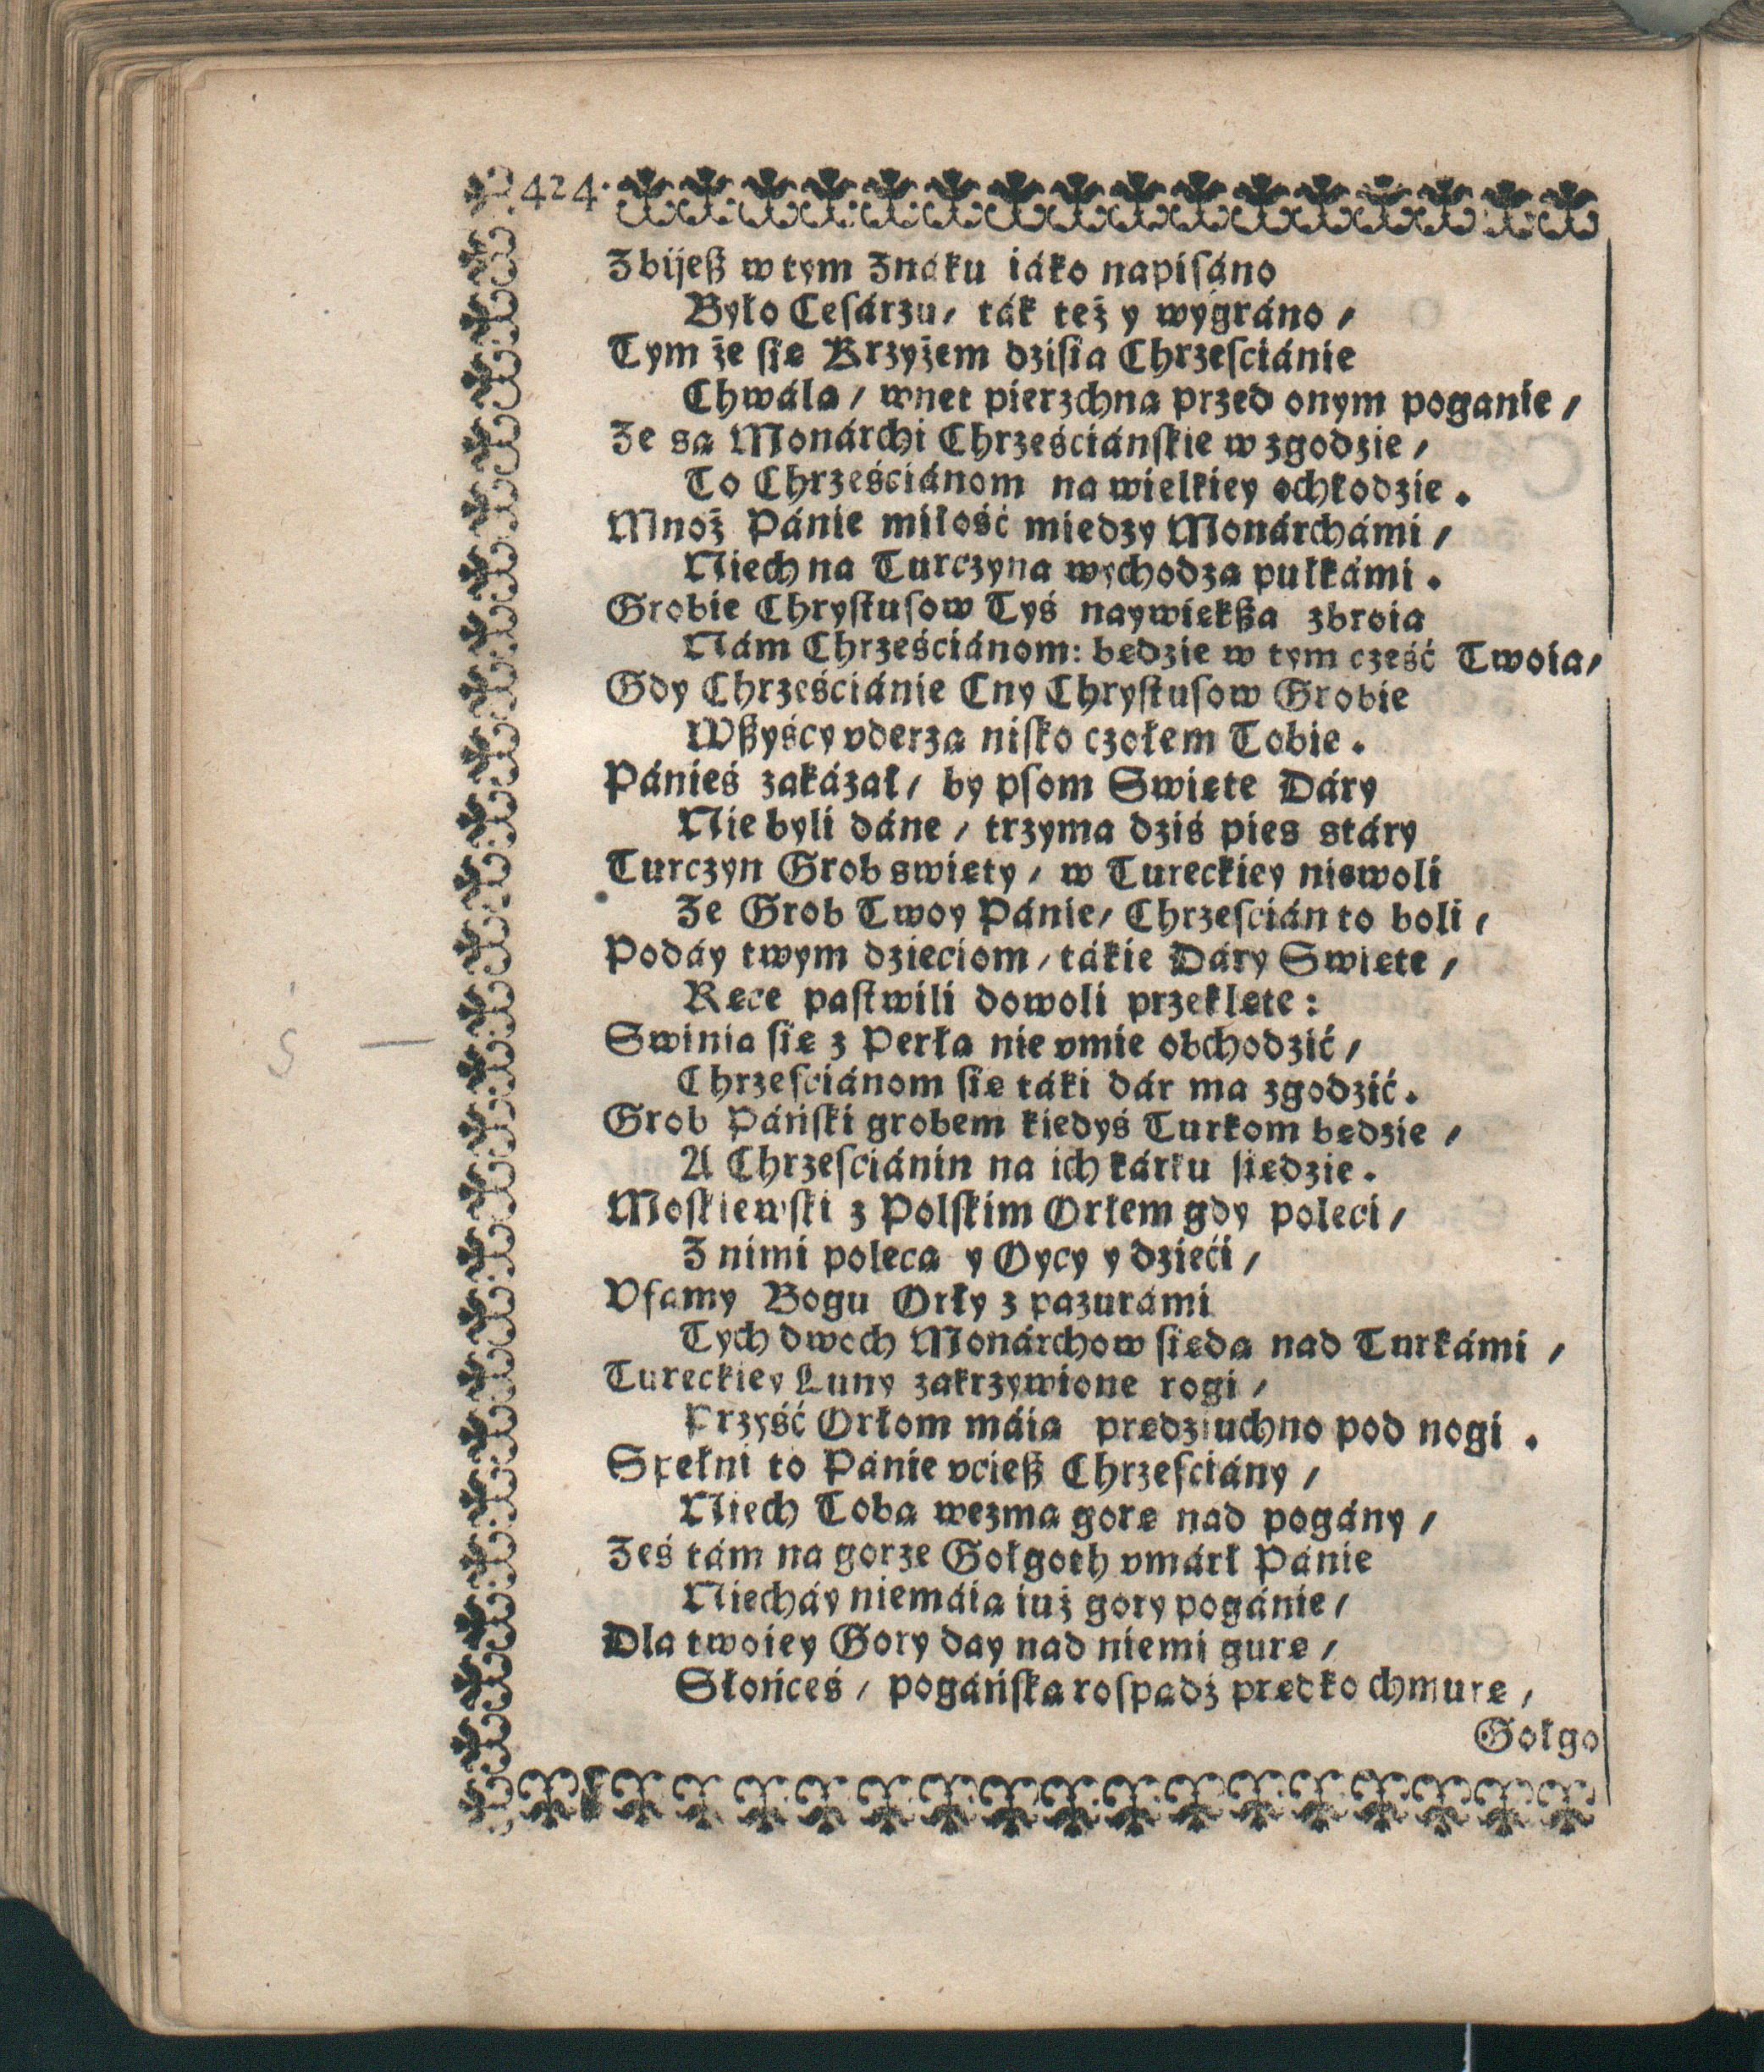 424.
Zbijeß w tym Znáku iáko napisáno
Było Cesárzu, ták też y wygráno,
Tym że się Krzyżem dzisia Chrzesciánie
Chwálą, wnet pierzchną przed onym poganie,
Ze są Monárchi Chrześciánskie w zgodzie,
To Chrześciánom na wielkiey ochłodzie.
Mnoż Pánie miłość miedzy Monárchámi,
Niech na Turczyna wychodzą pułkámi.
Grobie Chrystusow Tyś naywiekßa zbroia
Nám Chrześciánom: będzie w tym cześć Twoia,
Gdy Chrześciánie Cny Chrystusow Grobie
Wßyścy vderzą nisko czołem Tobie.
Pánieś zakázał, by psom Swięte Dáry
Nie byli dáne, trzyma dziś pies stáry
Turczyn Grob swięty, w Tureckiey niewoli
Ze Grob Twoy Pánie, Chrzescián to boli,
Podáy twym dzieciom, tákie Dáry Swięte,
Ręce pastwili dowoli przeklęte:
Swinia się z Perłą nie vmie obchodzić,
Chrzesciánom się táki dár ma zgodzić.
Grob Páński grobem kiedyś Turkom będzie,
A Chrzesciánin na ich kárku siędzie.
Moskiewski z Polskim Orłem gdy poleci,
Z nimi polecą y Oycy y dzieći,
Vfamy Bogu Orły z pazurámi
Tych dwoch Monárchow siędą nad Turkámi,
Tureckiey Luny zakrzywione rogi,
Przyść Orłom máią prędziuchno pod nogi.
Spełni to Pánie vcieß Chrzesciány,
Niech Tobą wezmą gorę nad pogány,
Ześ tám na gorze Gołgoth vmárł Pánie
Niecháy niemáią iuż gory pogánie,
Dla twoiey Gory day nad niemi gurę,
Słońceś, pogáńską rospadź prędko chmurę,
Gołgo
S